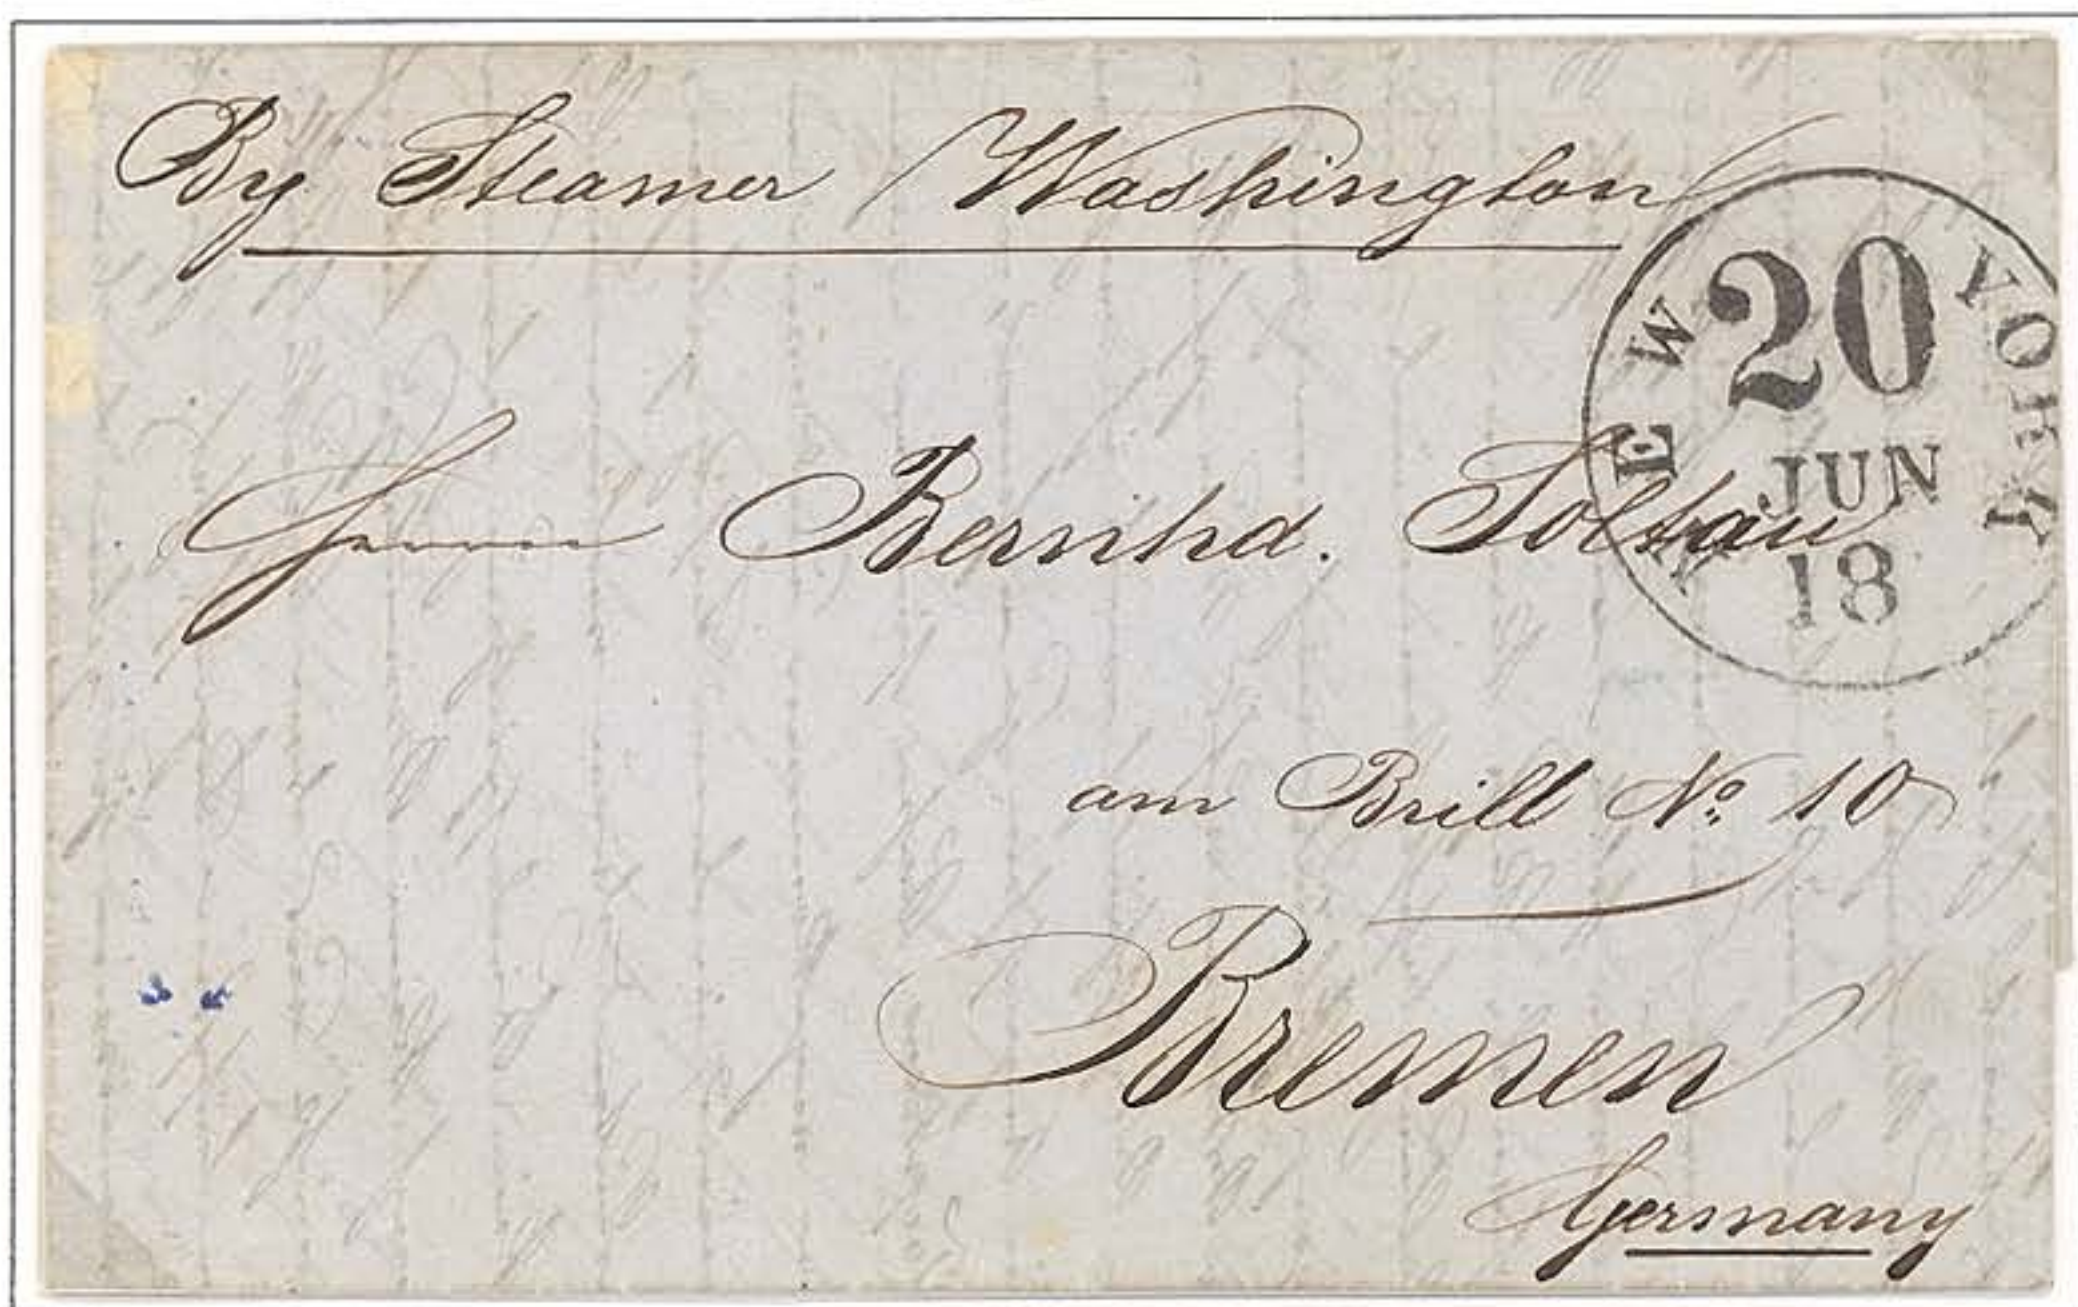 By Steamer Washington
NEW YORK
20
JUN
18
Herrn Bernhd. Soltau
am Brill No. 10
Bremen
Germany